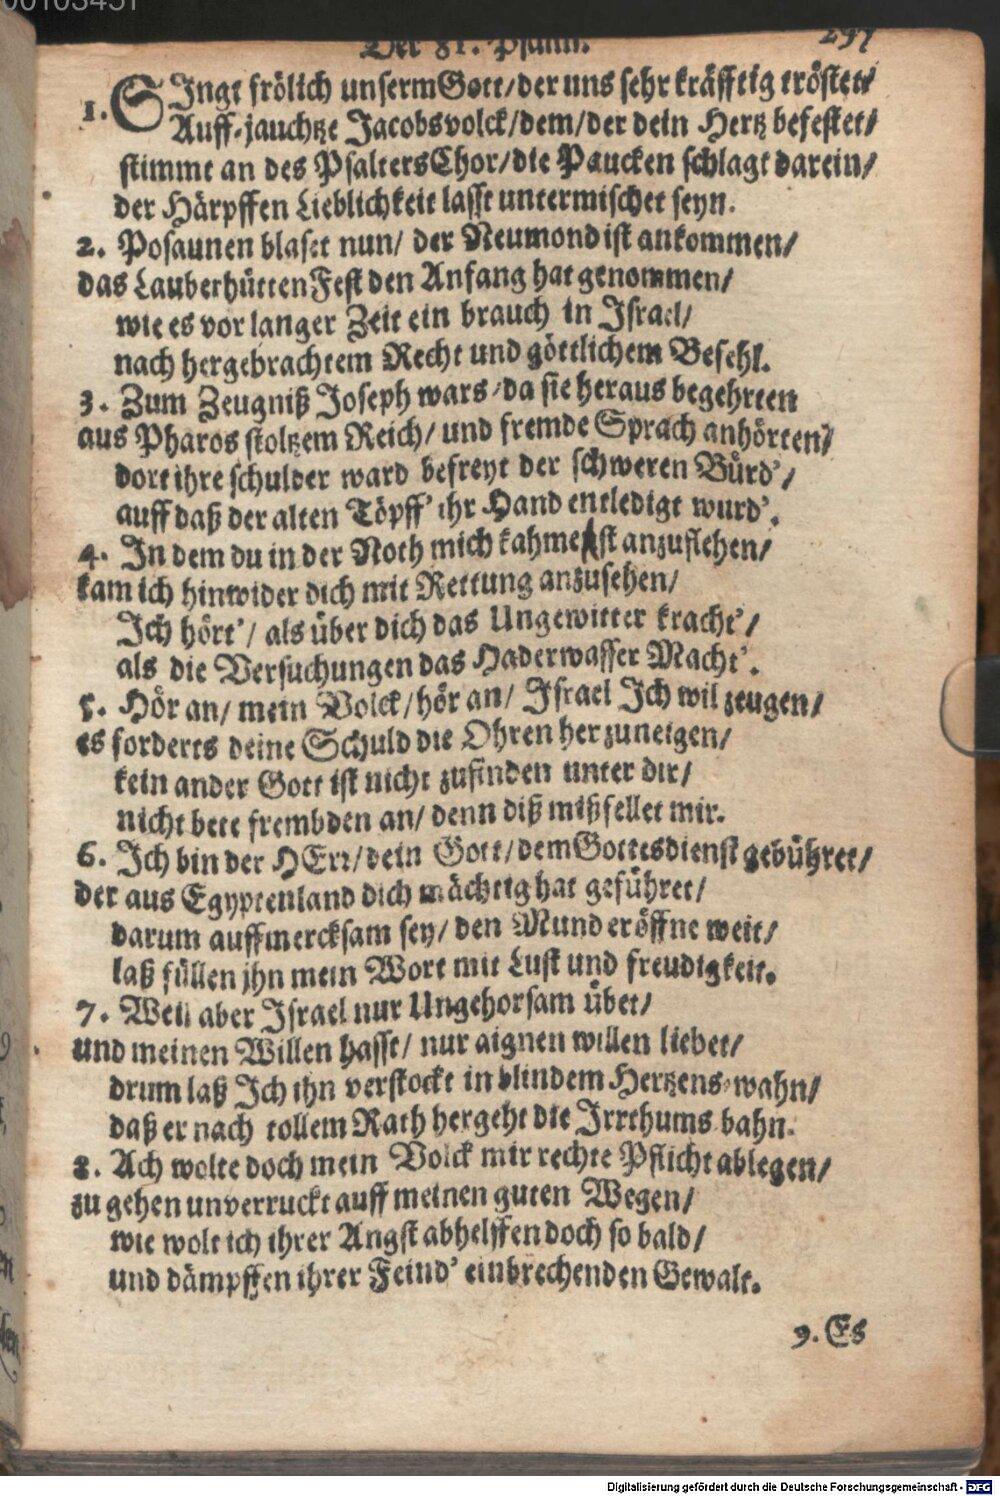 00103451
Der 81. Psalm. 297
1. SJngt frölich unserm Gott/ der uns sehr kräfftig tröstet/
Auff-jauchtze Jacobsvolck/ dem/ der dein Hertz befestet/
stimmt an des Psalters Chor/ die Paucken schlagt darein/
der Härpffen Lieblichkeit lasst untermischet seyn.
2. Posaunen blaset nun/ der Neumond ist ankommen/
das Lauberhütten Fest den Anfang hat genommen/
wie es vor langer Zeit ein brauch in Jsrael/
nach hergebrachtem Recht und göttlichem Befehl.
3. Zum Zeugniß Joseph wars/ da sie heraus begehrten
aus Pharos stoltzem Reich/ und fremde Sprach anhörten/
dort ihre schulder ward befreyt der schweren Bürd'/
auff daß der alten Töpff' ihr Hand entledigt wurd'.
4. Jn dem du in der Noth mich kahmest anzuflehen/
kam ich hinwider dich mit Rettung anzusehen/
Jch hört'/ als über dich das Ungewitter kracht'/
als die Versuchungen das Haderwasser Macht'.
5. Hör an/ mein Volck/ hör an/ Jsrael Jch wil zeugen/
es forderts deine Schuld die Ohren herzuneigen/
kein ander Gott ist nicht zufinden unter dir/
nicht bete frembden an/ denn diß mißfellet mir.
6. Jch bin der HErr/ dein Gott/ dem Gottesdienst gebühret/
der aus Egyptenland dich mächtig hat geführet/
darum auffmercksam sey/ den Mund eröffne weit/
laß füllen jhn mein Wort mit Lust und freudigkeit.
7. Weil aber Jsrael nur Ungehorsam übet/
und meinen Willen hasst/ nur aignen willen liebet/
drum laß Jch ihn verstockt in blindem Hertzens-wahn/
daß er nach tollem Rath hergeht die Jrrthums bahn.
8. Ach wolte doch mein Volck mir rechte Pflicht ablegen/
zu gehen unverruckt auff meinen guten Wegen/
wie wolt ich ihrer Angst abhelffen doch so bald/
und dämpffen ihrer Feind' einbrechenden Gewalt.
9. Es
Digitalisierung gefördert durch die Deutsche Forschungsgemeinschaft - DFG